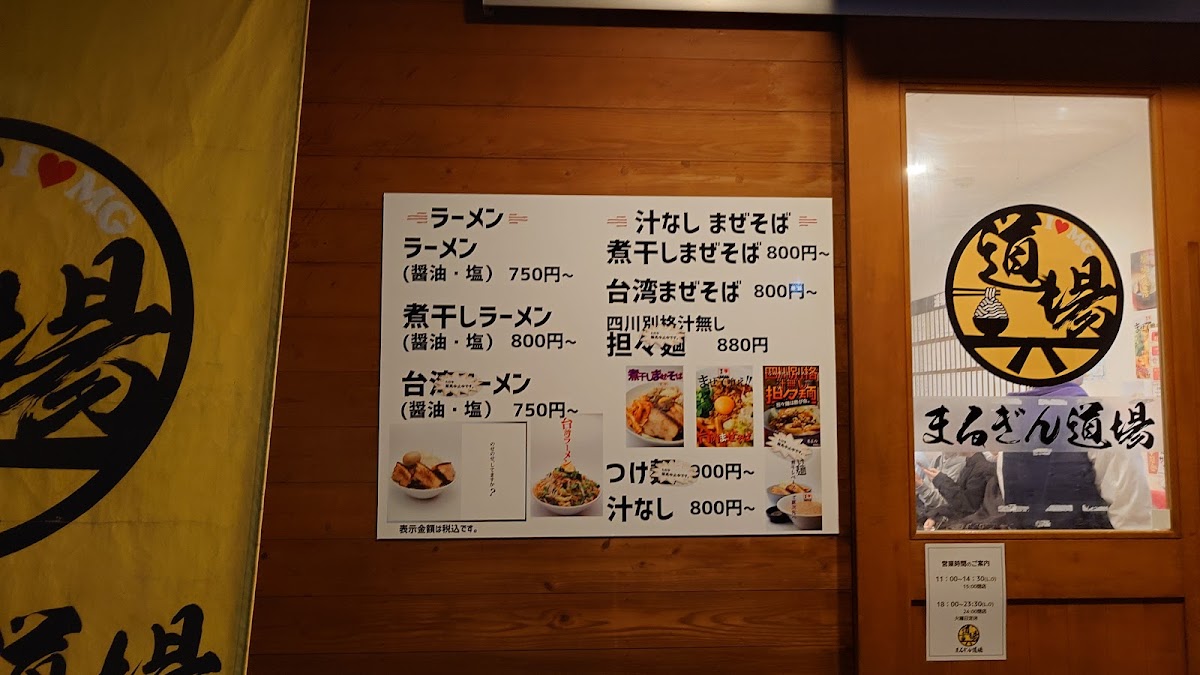 I♥MG
場
道場
ラーメン
ラーメン
(醤油・塩) 750円~
煮干しラーメン
(醤油・塩) 800円~
台湾ラーメン
(醤油・塩) 750円~
のせのせ、してますか?
台湾ラーメン
表示金額は税込です。
汁なし まぜそば
煮干しまぜそば 800円~
台湾まぜそば 800円~
四川別格汁無し
担々麺 880円
煮干しまぜそば
四川別格
担々麺
つけ麺 900円~
汁なし 800円~
I♥MG
道場
まるぎん道場
営業時間のご案内
11:00~14:30(L.O)
15:00閉店
18:00~23:30(L.O)
24:00閉店
火曜日定休
道場
まるぎん道場